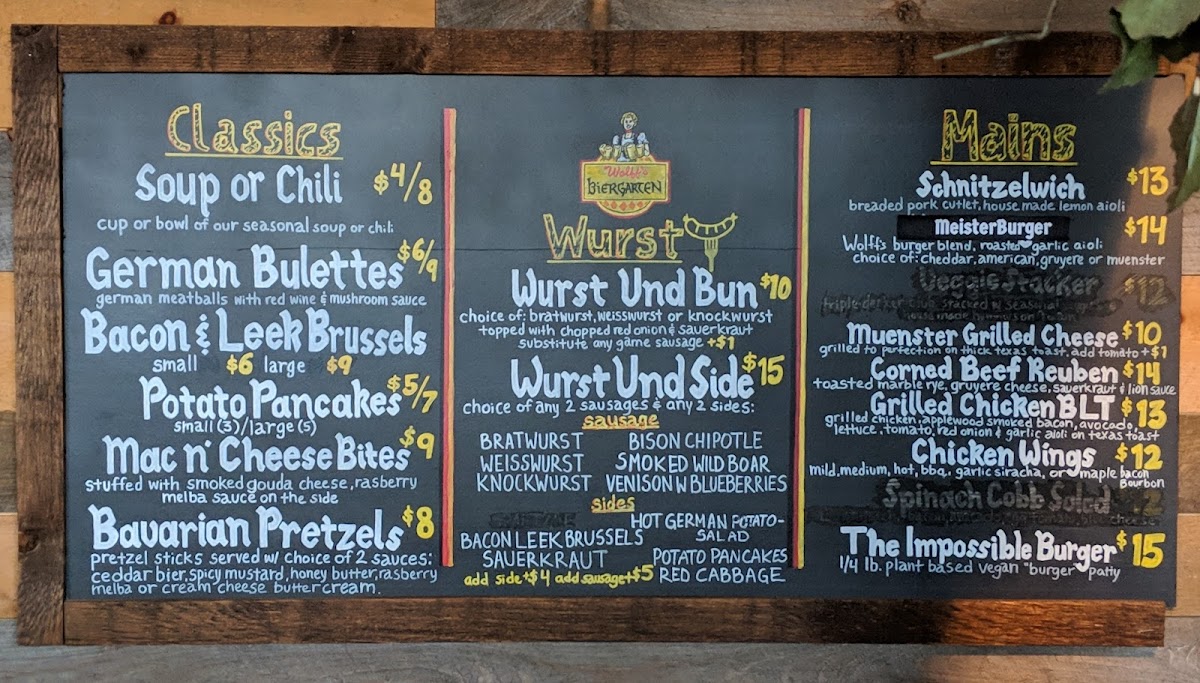 Classics
Soup or Chili $4/8
cup or bowl of our seasonal soup or chili
German Bulettes $6/9
german meatballs with red wine & mushroom sauce
Bacon & Leek Brussels
small $6 large $9
Potato Pancakes $5/7
small (3)/large (5)
Mac n' Cheese Bites $9
stuffed with smoked gouda cheese, rasberry
melba sauce on the side
Bavarian Pretzels $8
pretzel sticks served w/ choice of 2 sauces:
ceddar bier, spicy mustard, honey butter, rasberry
melba or cream cheese buttercream.
Wolff's
BIERGARTEN
Wurst
Wurst Und Bun $10
choice of: bratwurst, weisswurst or knockwurst
topped with chopped red onion & sauerkraut
substitute any game sausage +$1
Wurst Und Side $15
choice of any 2 sausages & any 2 sides:
sausage
BRATWURST BISON CHIPOTLE
WEISSWURST SMOKED WILD BOAR
KNOCKWURST VENISON W BLUEBERRIES
sides
HOT GERMAN POTATO-
SALAD
BACON LEEK BRUSSELS
SAUERKRAUT POTATO PANCAKES
add side +$4 add sausage +$5 RED CABBAGE
Mains
Schnitzelwich $13
breaded pork cutlet, house made lemon aioli
MeisterBurger $14
Wolff's burger blend, roasted garlic aioli
choice of: cheddar, american, gruyere or muenster
Veggie Stacker $12
triple decker club stacked w seasonal
Muenster Grilled Cheese $10
grilled to perfection on thick texas toast, add tomato +$1
Corned Beef Reuben $14
toasted marble rye, gruyere cheese, sauerkraut & lion sauce
Grilled Chicken BLT $13
grilled chicken, applewood smoked bacon, avocado,
lettuce, tomato, red onion & garlic aioli on texas toast
Chicken Wings $12
mild, medium, hot, bbq, garlic siracha, or maple bacon
Bourbon
Spinach Cobb Salad
cheese
The Impossible Burger $15
1/4 lb. plant based vegan "burger" patty